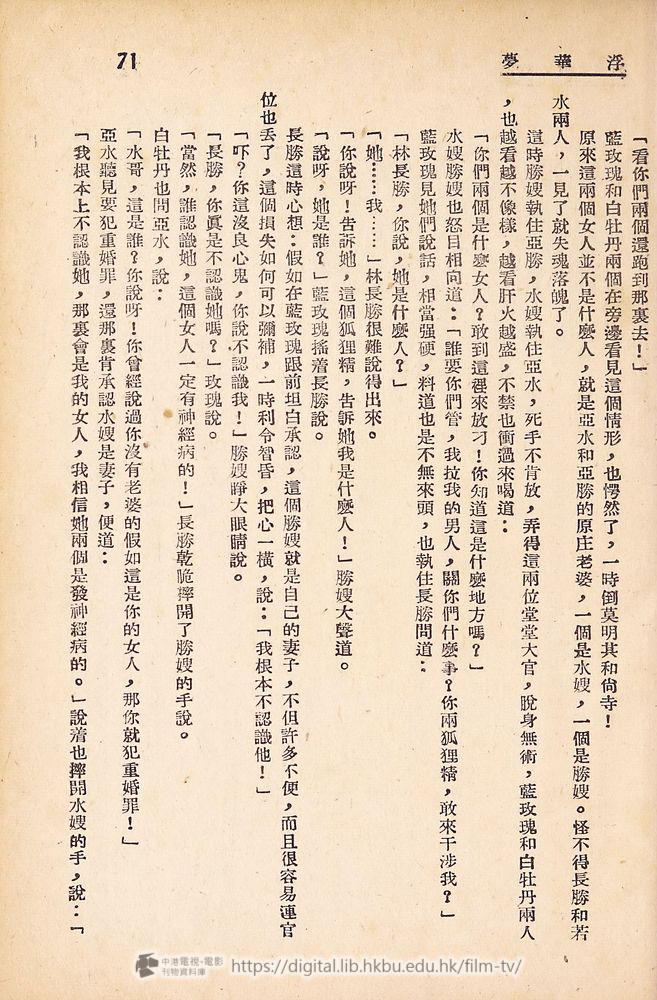 浮華夢
71
「看你們兩個還跑到那裏去！」
藍玫瑰和白牡丹兩個在旁邊看見這個情形，也愕然了，一時倒莫明其和尙寺！
原來這兩個女人並不是什麼人，就是亞水和亞勝的原庄老婆，一個是水嫂，一個是勝嫂。怪不得長勝和若
水兩人，一見了就失魂落魄了。
這時勝嫂執住亞勝，水嫂執住亞水，死手不肯放，弄得這兩位堂堂大官，脫身無術，藍玫瑰和白牡丹兩人
，也越看越不像樣，越看肝火越盛，不禁也衝過來喝道：
「你們兩個是什麼女人？敢到這裡來放刁！你知道這是什麼地方嗎？」
水嫂勝嫂也怒目相向道：「誰要你們管，我拉我的男人，關你們什麼事？你兩狐狸精，敢來干涉我？」
藍玫瑰見她們說話，相當强硬，料道也是不無來頭，也執住長勝問道：
「林長勝，你說，她是什麼人？」
「她……我……」林長勝很難說得出來。
「你說呀！告訴她，這個狐狸精，告訴她我是什麼人！」勝嫂大聲道。
「說呀，她是誰？」藍玫瑰搖着長勝說。
長勝這時心想：假如在藍玫瑰跟前坦白承認，這個勝嫂就是自己的妻子，不但許多不便，而且很容易連官
位也丟了，這個損失如何可以彌補，一時利令智昏，把心一橫，說：「我根本不認識他！」
「吓？你這沒良心鬼，你說不認識我！」勝嫂睜大眼睛說。
「長勝，你眞是不認識她嗎？」玫瑰說。
「當然，誰認識她，這個女人一定有神經病的！」長勝乾脆摔開了勝嫂的手說。
白牡丹也問亞水，說：
「水哥，這是誰？你說呀！你曾經說過你沒有老婆的假如這是你的女人，那你就犯重婚罪！」
亞水聽見要犯重婚罪，還那裏肯承認水嫂是妻子，便道：
「我根本上不認識她，那裏會是我的女人，我相信她兩個是發神經病的。」說着也摔開水嫂的手，說：「
中港電視·電影
刊物資料庫
https://digital.lib.hkbu.edu.hk/film-tv/